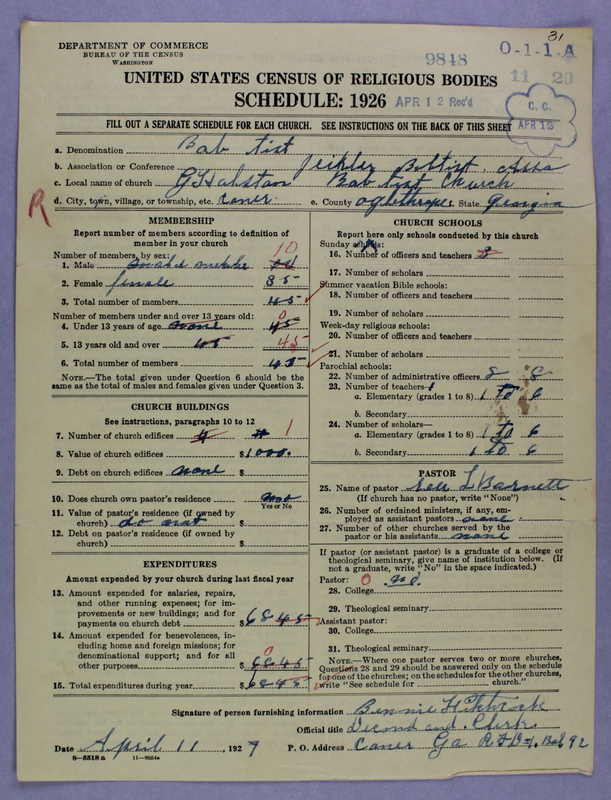 31
DEPARTMENT OF COMMERCE
BUREAU OF THE CENSUS
WASHINGTON
9848
O-1-1-A
11 29
UNITED STATES CENSUS OF RELIGIOUS BODIES
SCHEDULE: 1926 APR 12 Rec'd
C. C.
APR 12
FILL OUT A SEPARATE SCHEDULE FOR EACH CHURCH. SEE INSTRUCTIONS ON THE BACK OF THIS SHEET
a. Denomination Bab tist
b. Association or Conference
c. Local name of church Bab tist Church
d. City, town, village, or township, etc. Caner. e. County oglethrope f. State. Georgia
R
MEMBERSHIP
Report number of members according to definition of member in your church
Number of members, by sex: 10
1. Male
2. Female female 35
3. Total number of members 45
Number of members under and over 13 years old: 0
4. Under 13 years of age none 45
5. 13 years old and over 45 45
6. Total number of members 45
NOTE.—The total given under Question 6 should be the same as the total of males and females given under Question 3.
CHURCH BUILDINGS
See instructions, paragraphs 10 to 12
7. Number of church edifices 1
8. Value of church edifices $1000.
9. Debt on church edifices none $
10. Does church own pastor's residence
Yes or No
11. Value of pastor's residence (if owned by church) do not $
12. Debt on pastor's residence (if owned by church) $
EXPENDITURES
Amount expended by your church during last fiscal year
13. Amount expended for salaries, repairs, and other running expenses; for improvements or new buildings; and for payments on church debt $6845
14. Amount expended for benevolences, including home and foreign missions; for denominational support; and for all other purposes 0 $6845
15. Total expenditures during year $6845
CHURCH SCHOOLS
Report here only schools conducted by this church
Sunday schools:
16. Number of officers and teachers 3
17. Number of scholars
Summer vacation Bible schools:
18. Number of officers and teachers
19. Number of scholars
Week-day religious schools:
20. Number of officers and teachers
21. Number of scholars
Parochial schools:
22. Number of administrative officers 8 8
23. Number of teachers—
a. Elementary (grades 1 to 8) 1 to 6
b. Secondary
24. Number of scholars—
a. Elementary (grades 1 to 8) 1 to 6
b. Secondary 1 to 6
PASTOR
25. Name of pastor L Barnett
(If church has no pastor, write "None")
26. Number of ordained ministers, if any, employed as assistant pastors none.
27. Number of other churches served by the pastor or his assistants none
If pastor (or assistant pastor) is a graduate of a college or theological seminary, give name of institution below. (If not a graduate, write "No" in the space indicated.)
Pastor: 0
28. College
29. Theological seminary
Assistant pastor:
30. College
31. Theological seminary
NOTE.—Where one pastor serves two or more churches, Questions 28 and 29 should be answered only on the schedule for one of the churches; on the schedules for the other churches, write "See schedule for church."
Signature of person furnishing information Bennie
Official title Clerk.
Date April 11, 1927 P. O. Address Caner Ga Box 92
8—5518a 11—9664a